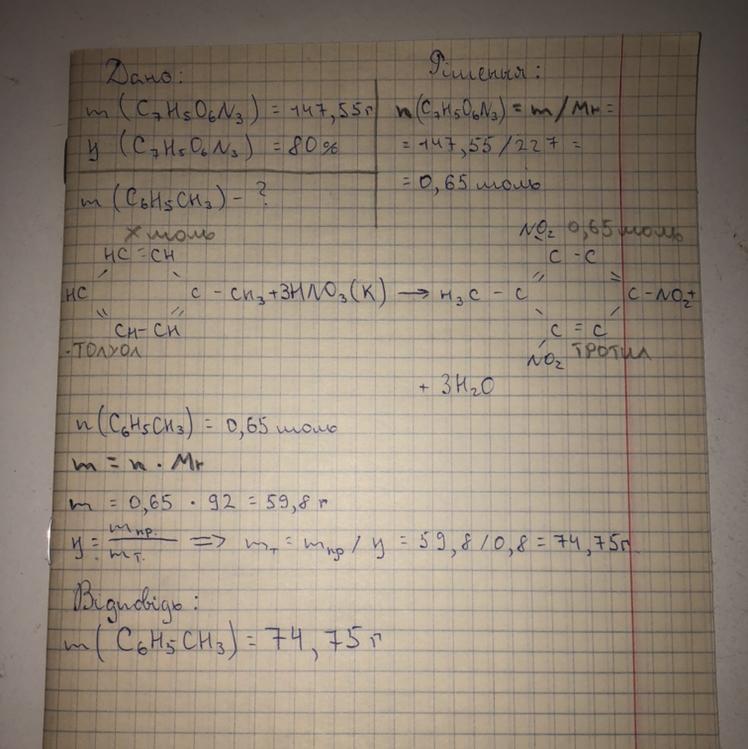 Дано:
m (C₇H₅O₆N₃) = 147,55г
y (C₇H₅O₆N₃) = 80%
m (C₆H₅CH₃) - ?
Рішення:
n(C₇H₅O₆N₃) = m/Mr =
= 147,55/227 =
= 0,65 моль
x моль
NO₂ 0,65 моль
HC = CH
C - C
HC C - CH₃ + 3HNO₃(K) → H₃C - C C - NO₂ +
CH - CH
C = C
толуол
NO₂ тротил
+ 3H₂O
n(C₆H₅CH₃) = 0,65 моль
m = n · Mr
m = 0,65 · 92 = 59,8 г
y = mпр. / mт. => mт = mпр / y = 59,8/0,8 = 74,75г
Відповідь:
m(C₆H₅CH₃) = 74,75г